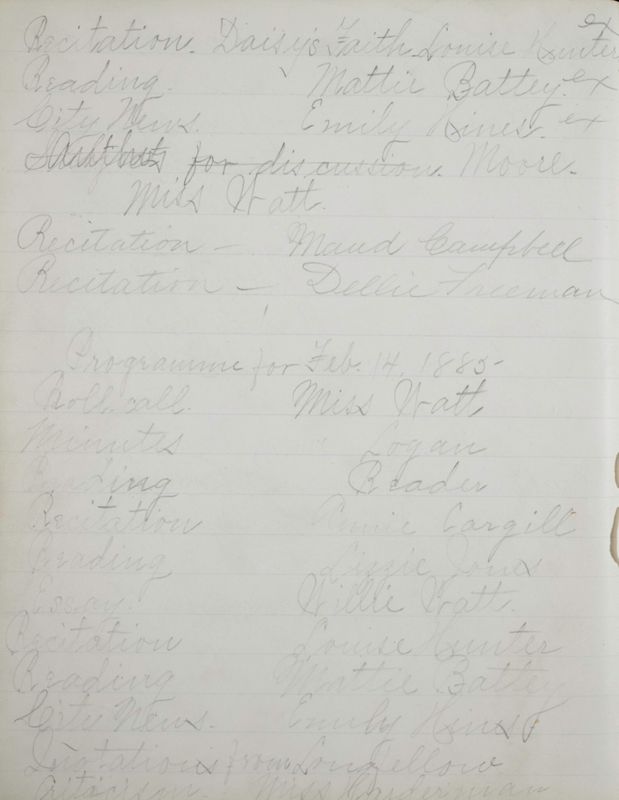 Recitation. Daisy's Faith Louise Hunter ex
Reading. Mattie Battey. ex
City News. Emily Hines. ex
for discussion. Moore.
Miss Watt.
Recitation — Maud Campbell
Recitation — Dellie Freeman
Programme for Feb. 14, 1885
Roll call. Miss Watt
Minutes " Logan
Reading Reader
Recitation Annie Cargill
Reading Lizzie Jones
Essay. Willie Watt.
Recitation Louise Hunter
Reading Mattie Battey
City News. Emily Hines
Quotations from Longfellow
Criticism. Miss